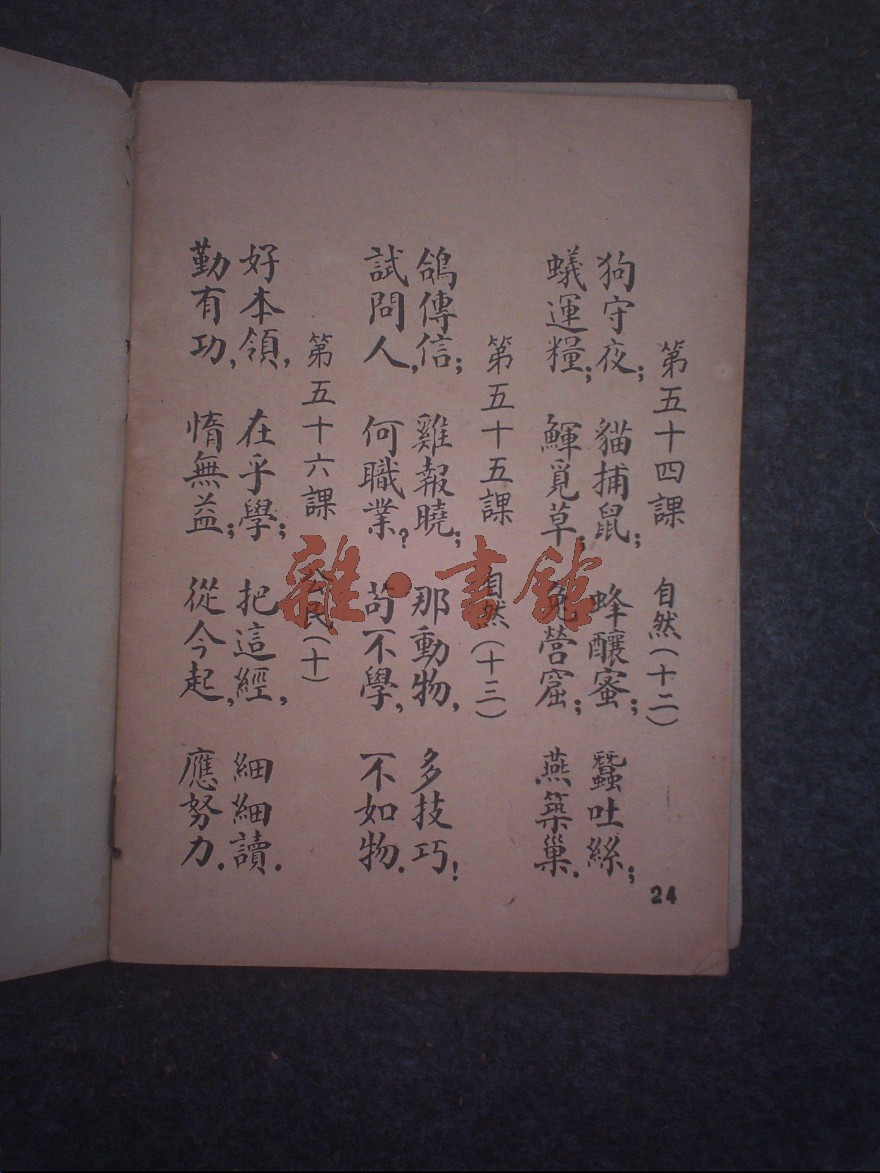 第五十四課 自然(十二)
狗守夜； 貓捕鼠； 蜂釀蜜； 蠶吐絲；
蟻運糧； 鯶覓草； 兔營窟； 燕築巢．
第五十五課 自然(十三)
鴿傳信； 雞報曉； 那動物， 多技巧！
試問人， 何職業？ 苟不學， 不如物．
第五十六課 公民(十)
好本領， 在乎學； 把這經， 細細讀．
勤有功， 惰無益； 從今起， 應努力．
24
雜·書館